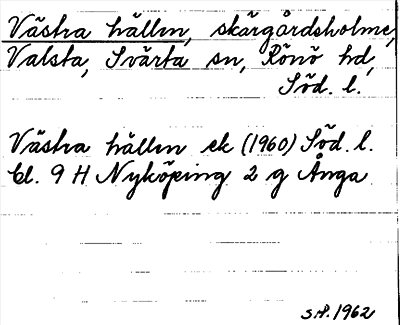 Västra hällen, skärgårdsholme,
Valsta, Svärta sn, Rönö hd,
Söd. l.
Västra hällen ek (1960) Söd. l.
bl. 9 H Nyköping 2 g Ånga
S.H. 1962